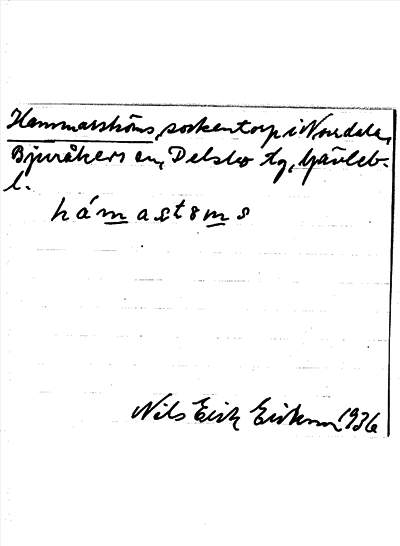 Hammarströms, sockentorp i Nordala,
Bjuråkers sn, Delsbo tg, Gävleb.
l.
hámastøms
Nils Erik Erikson 1936